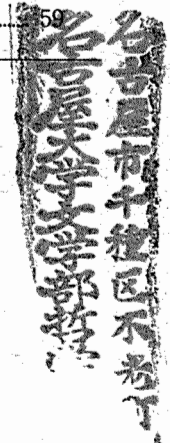 59
名古屋市千種区不老町
名古屋大学文学部哲